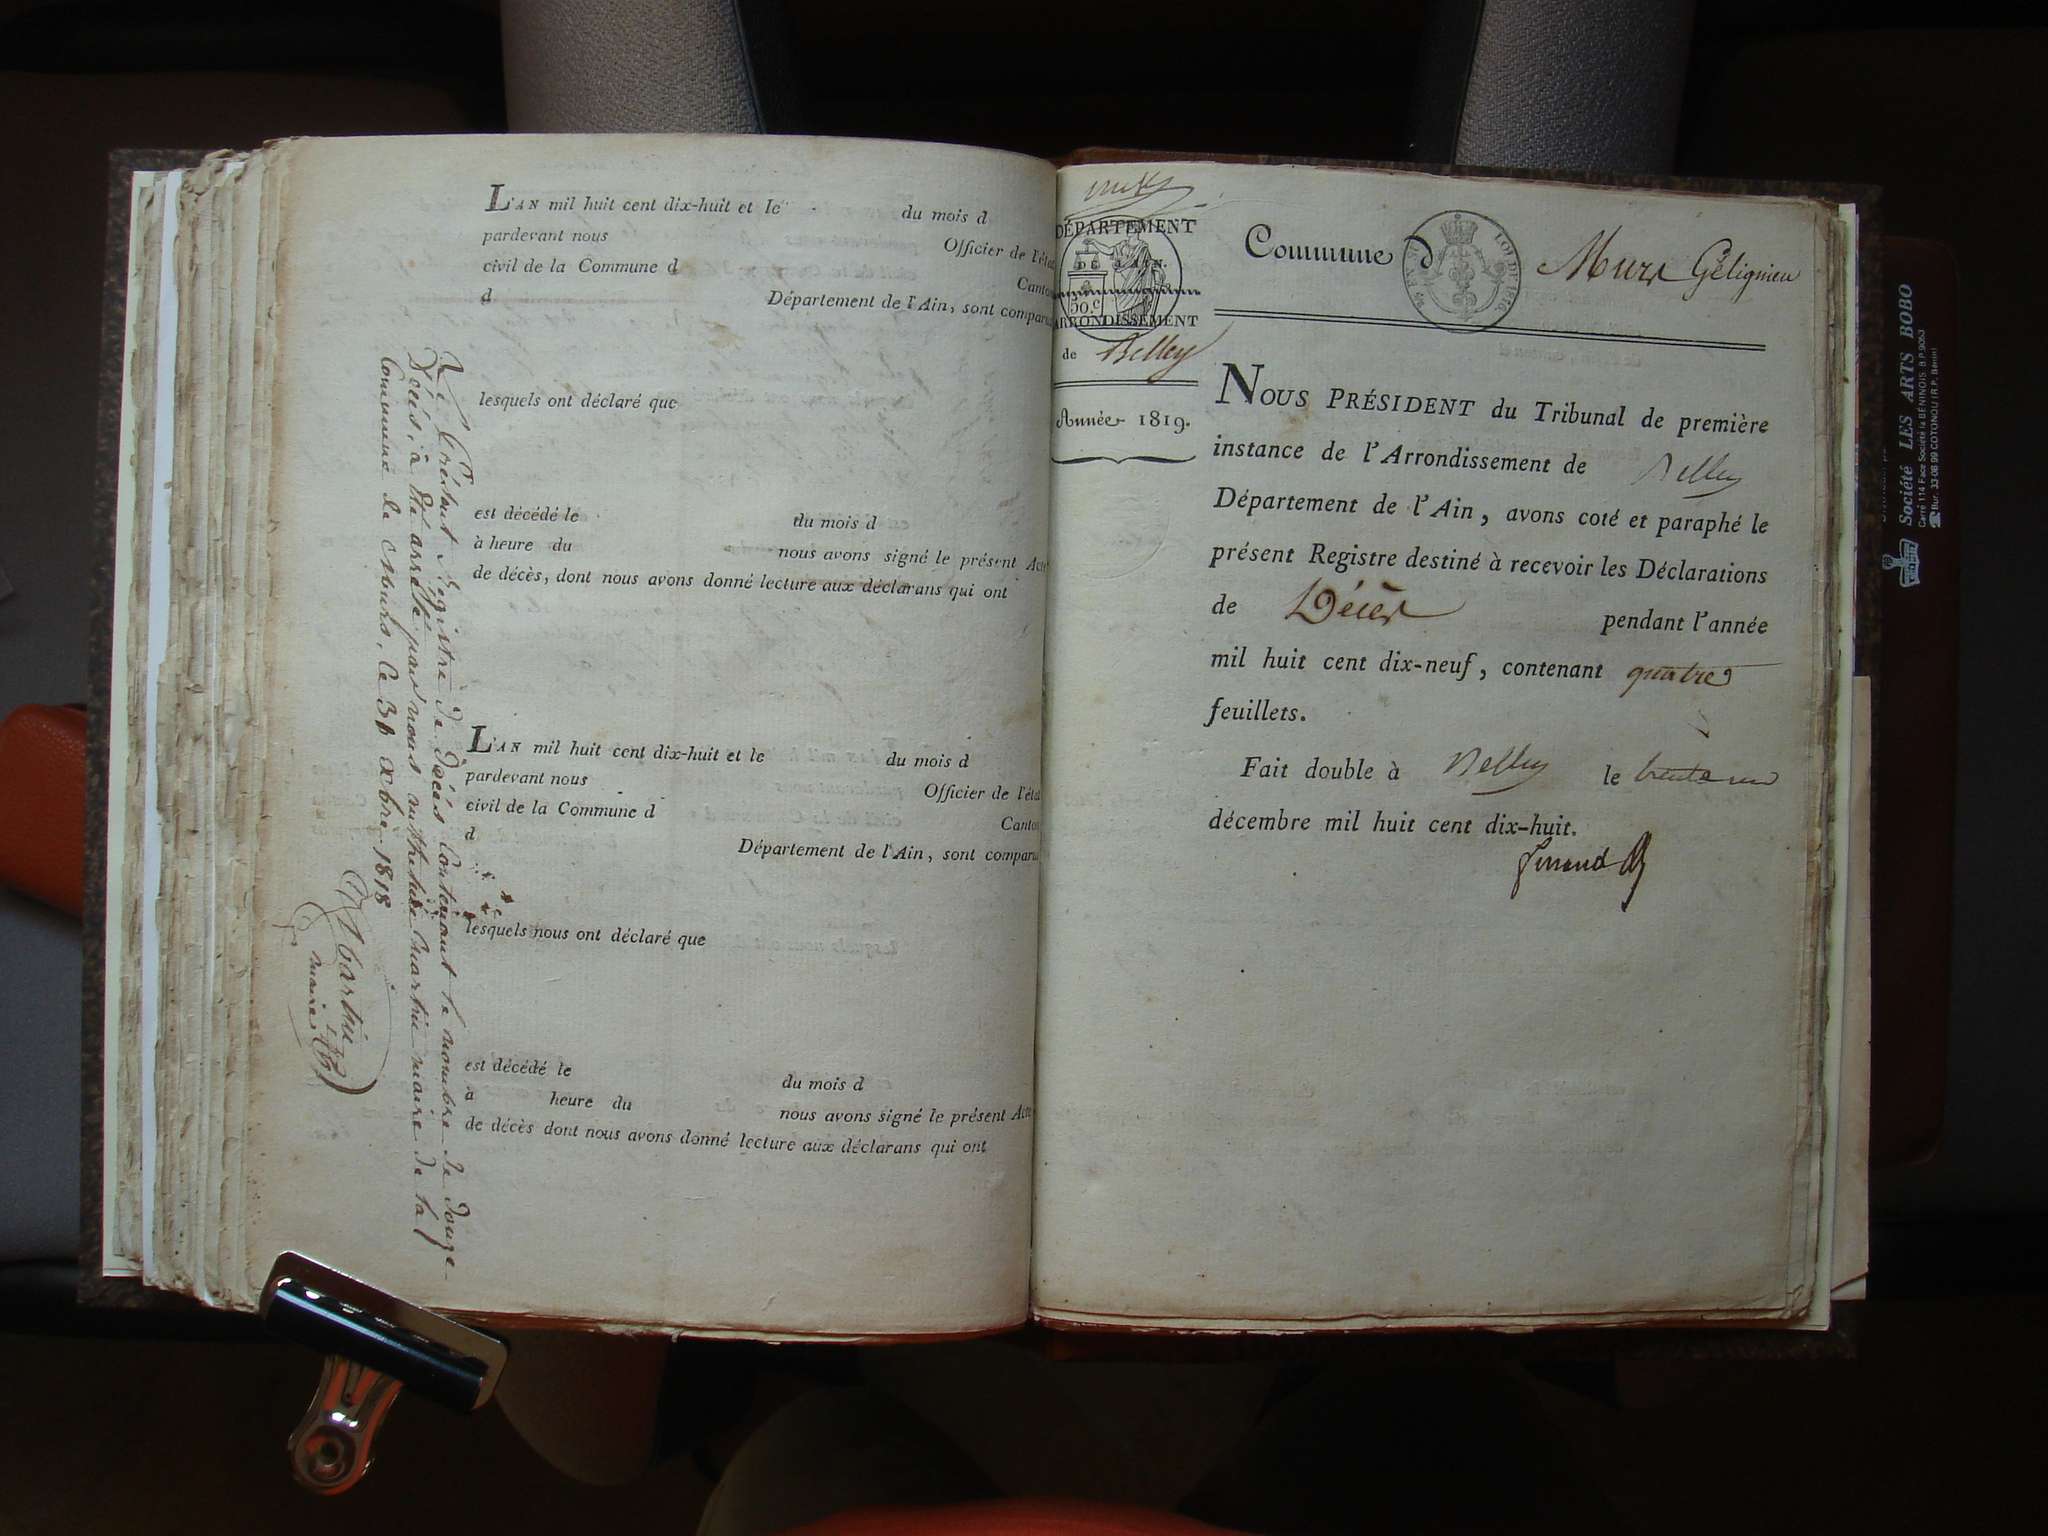 L'AN mil huit cent dix-huit et le du mois d
pardevant nous Officier de l'état
civil de la Commune d Canton
d Département de l'Ain, sont comparu
lesquels ont déclaré que
est décédé le du mois d
à heure du nous avons signé le présent Acte
de décès, dont nous avons donné lecture aux déclarans qui ont
L'AN mil huit cent dix-huit et le du mois d
pardevant nous Officier de l'état
civil de la Commune d Canton
d Département de l'Ain, sont comparu
lesquels nous ont déclaré que
est décédé le du mois d
à heure du nous avons signé le présent Acte
de décès dont nous avons donné lecture aux déclarans qui ont
Le Présent Registre de Décès Contenant le nombre de Douze
Décès, à été arrêté par nous anthelme Martin maire de la
Commune de Murs, le 31 Xbre 1818
Martin
maire
DÉPARTEMENT
DE L'AIN.
50.c
ARRONDISSEMENT
de Belley
Année 1819.
Commune d Murs Gélignieu
LOI DE 1816
NOUS PRÉSIDENT du Tribunal de première
instance de l'Arrondissement de Belley
Département de l'Ain, avons coté et paraphé le
présent Registre destiné à recevoir les Déclarations
de Décès pendant l'année
mil huit cent dix-neuf, contenant quatre
feuillets.
Fait double à Belley le trente un
décembre mil huit cent dix-huit.
Société LES ARTS BOBO
Carré 114 Face Société la BÉNINOIS B.P. 9053
Bur. 33 08 99 COTONOU (R.P. Bénin)